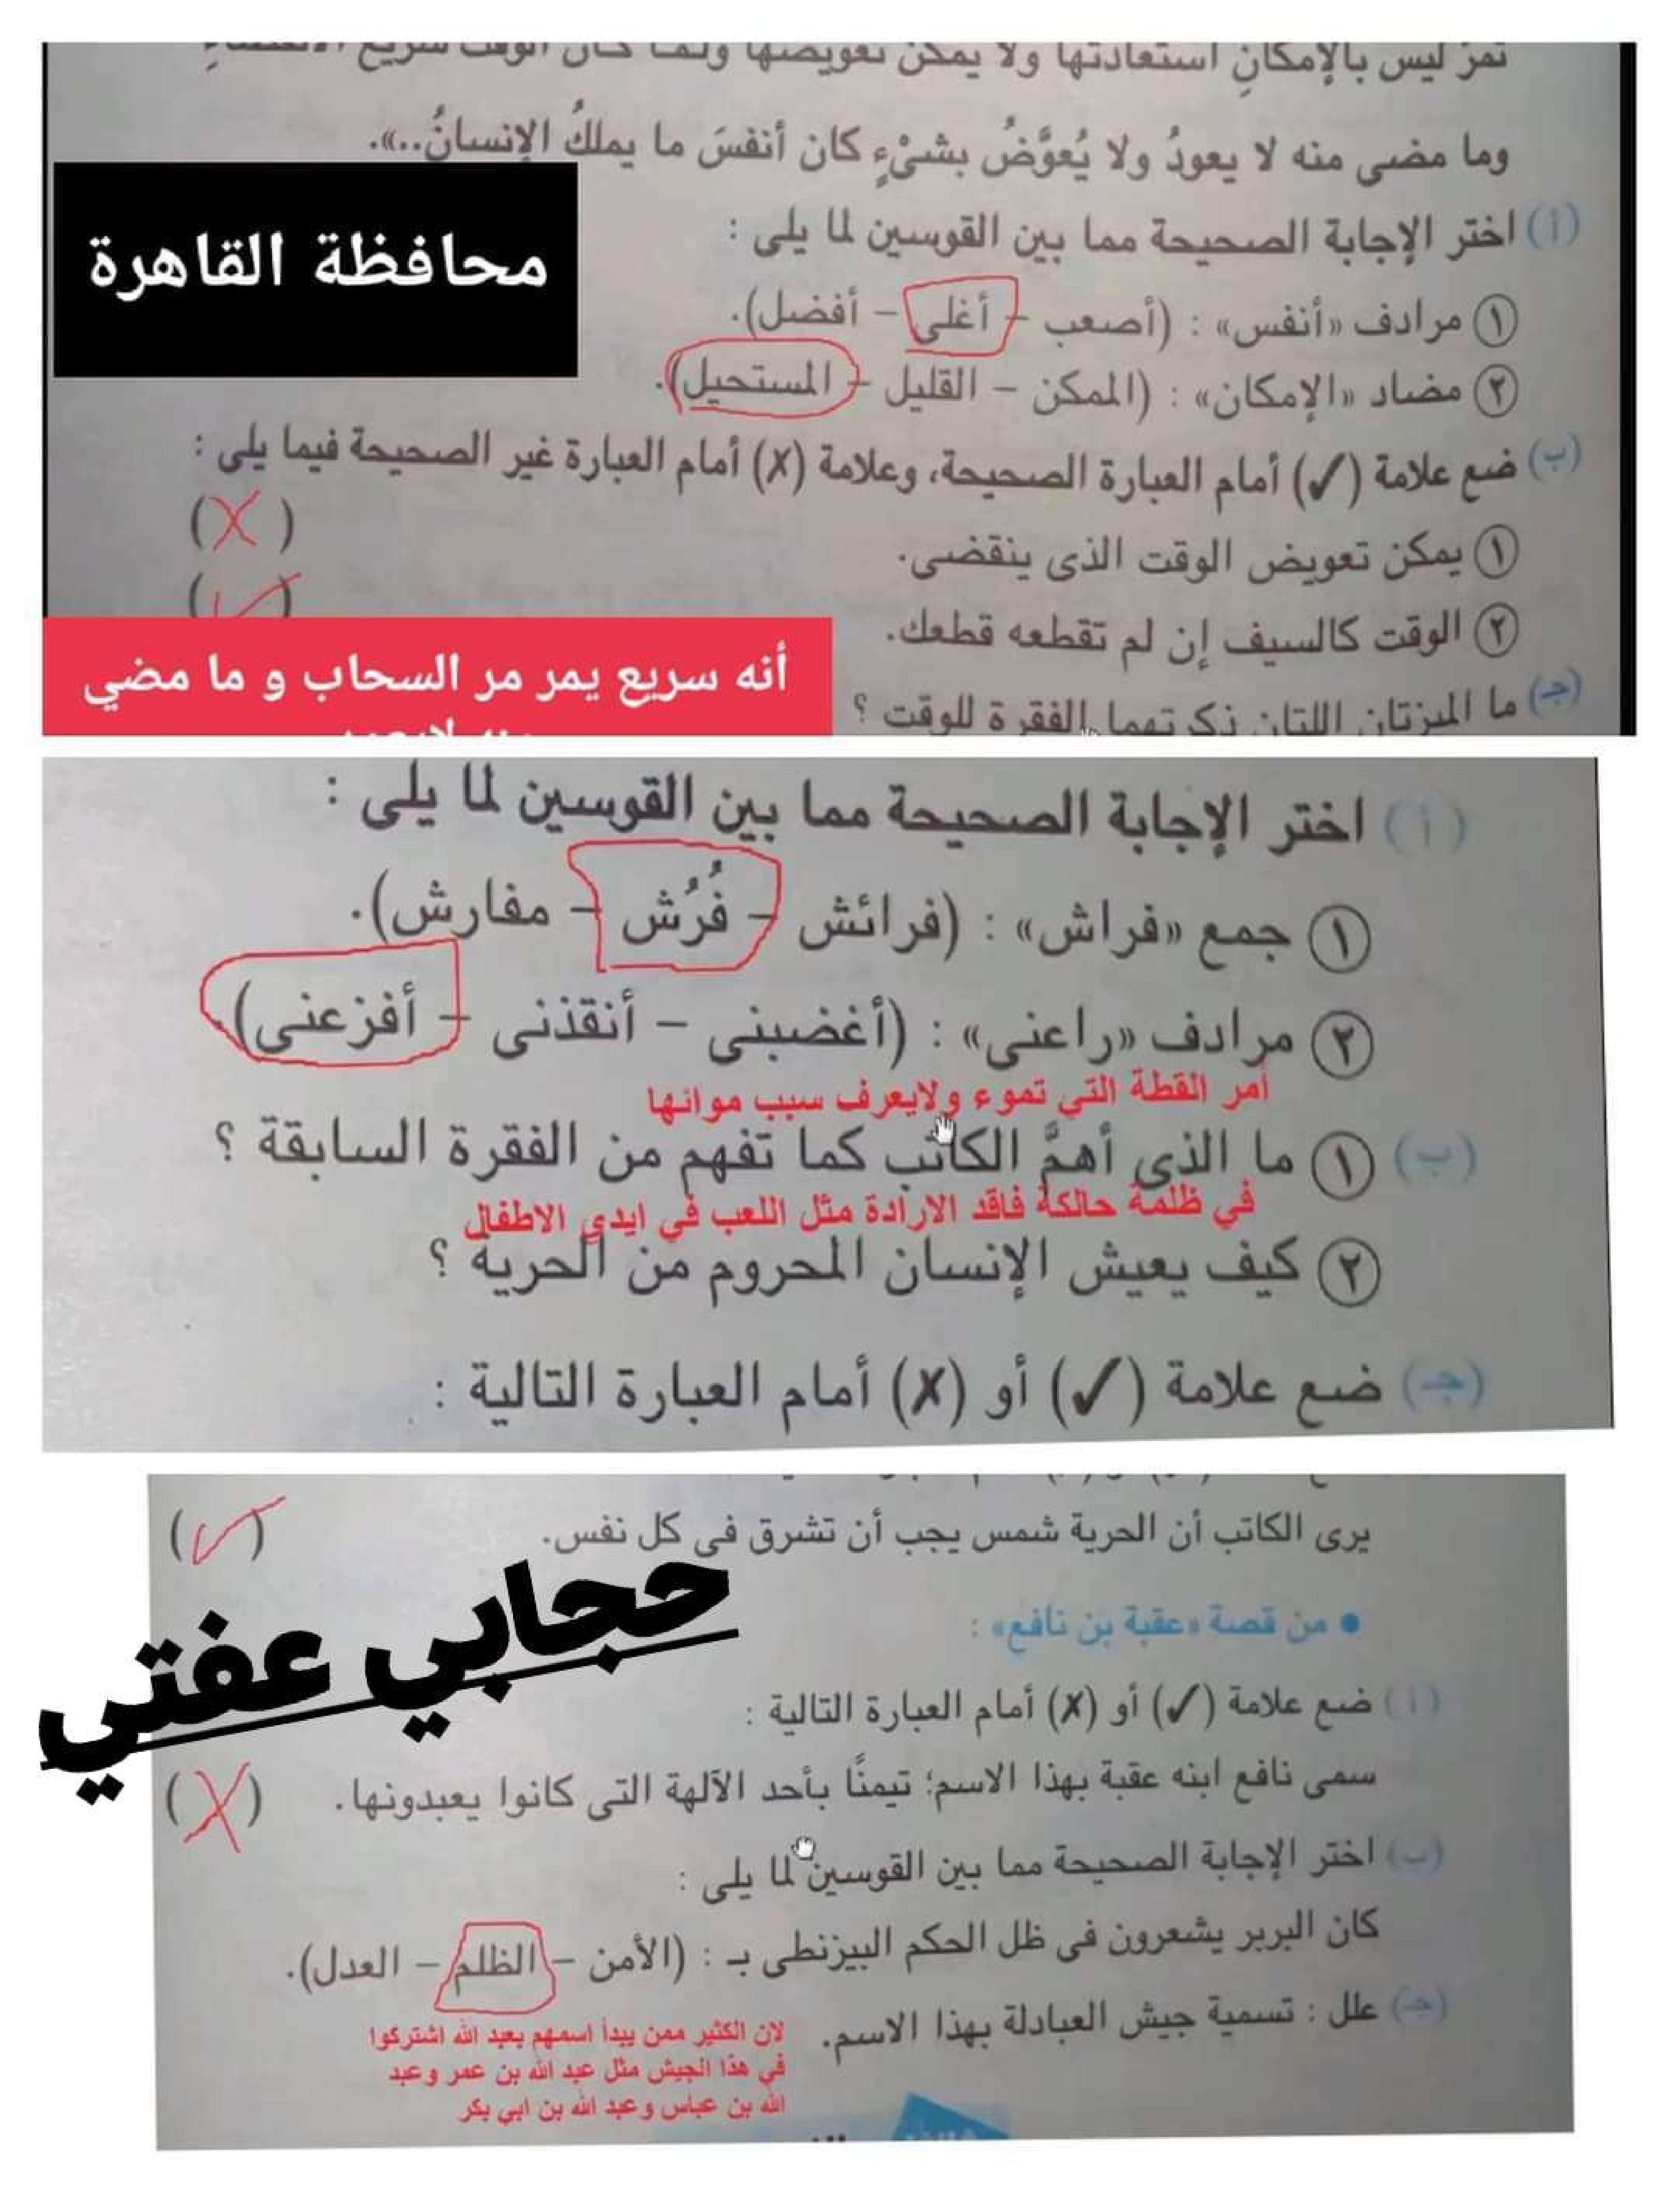 تمر ليس بالإمكانِ استعادتها ولا يمكن تعويضها ولما كان الوقت سريع الانقضاءِ
وما مضى منه لا يعودُ ولا يُعوَّضُ بشىْءٍ كان أنفسَ ما يملكُ الإنسانُ..».
محافظة القاهرة
(أ) اختر الإجابة الصحيحة مما بين القوسين لما يلى :
١ مرادف «أنفس» : (أصعب – أغلى – أفضل).
٢ مضاد «الإمكان» : (الممكن – القليل – المستحيل).
(ب) ضع علامة (✓) أمام العبارة الصحيحة، وعلامة (✗) أمام العبارة غير الصحيحة فيما يلى :
١ يمكن تعويض الوقت الذى ينقضى. (✗)
٢ الوقت كالسيف إن لم تقطعه قطعك. (✓)
أنه سريع يمر مر السحاب و ما مضي
(جـ) ما الميزتان اللتان ذكرتهما الفقرة للوقت ؟
(أ) اختر الإجابة الصحيحة مما بين القوسين لما يلى :
١ جمع «فراش» : (فرائش – فُرُش – مفارش).
٢ مرادف «راعنى» : (أغضبنى – أنقذنى – أفزعنى).
أمر القطة التي تموء ولايعرف سبب موائها
(ب) ١ ما الذى أهمَّ الكاتب كما تفهم من الفقرة السابقة ؟
في ظلمة حالكة فاقد الارادة مثل اللعب في ايدي الاطفال
٢ كيف يعيش الإنسان المحروم من الحرية ؟
(جـ) ضع علامة (✓) أو (✗) أمام العبارة التالية :
يرى الكاتب أن الحرية شمس يجب أن تشرق فى كل نفس. (✓)
حجابي عفتي
• من قصة «عقبة بن نافع» :
(أ) ضع علامة (✓) أو (✗) أمام العبارة التالية :
سمى نافع ابنه عقبة بهذا الاسم؛ تيمنًا بأحد الآلهة التى كانوا يعبدونها. (✗)
(ب) اختر الإجابة الصحيحة مما بين القوسين لما يلى :
كان البربر يشعرون فى ظل الحكم البيزنطى بـ : (الأمن – الظلم – العدل).
(جـ) علل : تسمية جيش العبادلة بهذا الاسم.
لان الكثير ممن يبدأ اسمهم بعبد الله اشتركوا
في هذا الجيش مثل عبد الله بن عمر وعبد
الله بن عباس وعبد الله بن ابي بكر